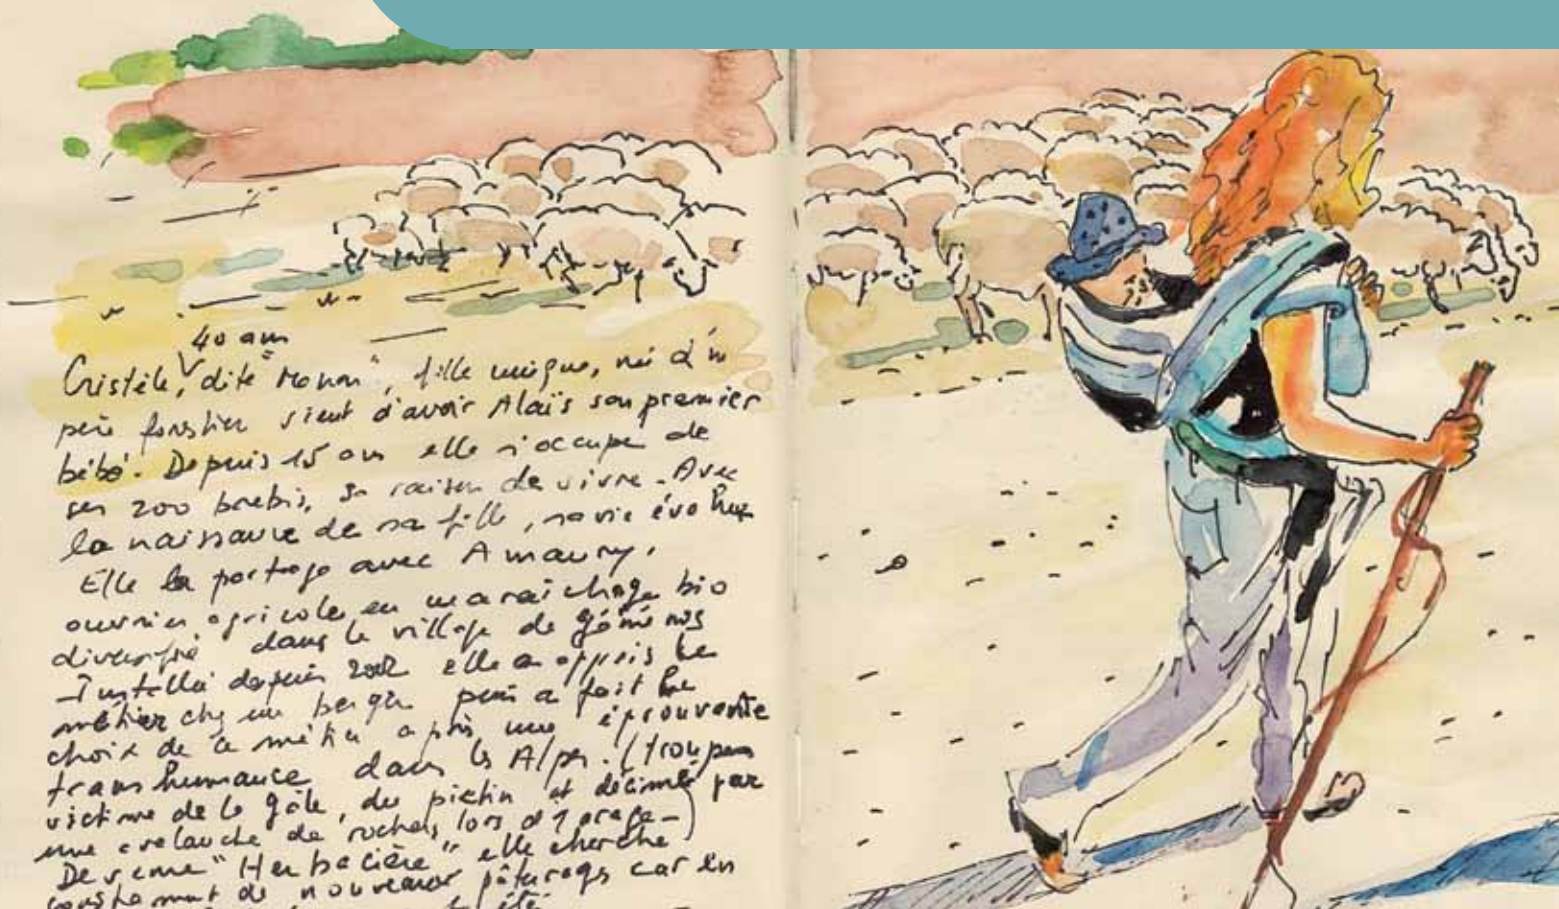 40 ans
Cristèle, dite "Manon", fille unique, né d'un
père forestier vient d'avoir Alaïs son premier
bébé. Depuis 15 ans elle s'occupe de
ses 200 brebis, sa raison de vivre. Avec
la naissance de sa fille, sa vie évolue
Elle la partage avec Amaury,
ouvrier agricole en maraîchage bio
diversifié dans le village de Gémenos
Installé depuis 2002 elle a appris le
métier chez un berger puis a fait le
choix de ce métier après une éprouvante
transhumance dans les Alpes. (troupeau
victime de la gale, du piétin et décimé par
une avalanche de rochers lors d'1 orage-)
Devenue "Herbacière" elle cherche
constamment de nouveaux pâturages car en
été